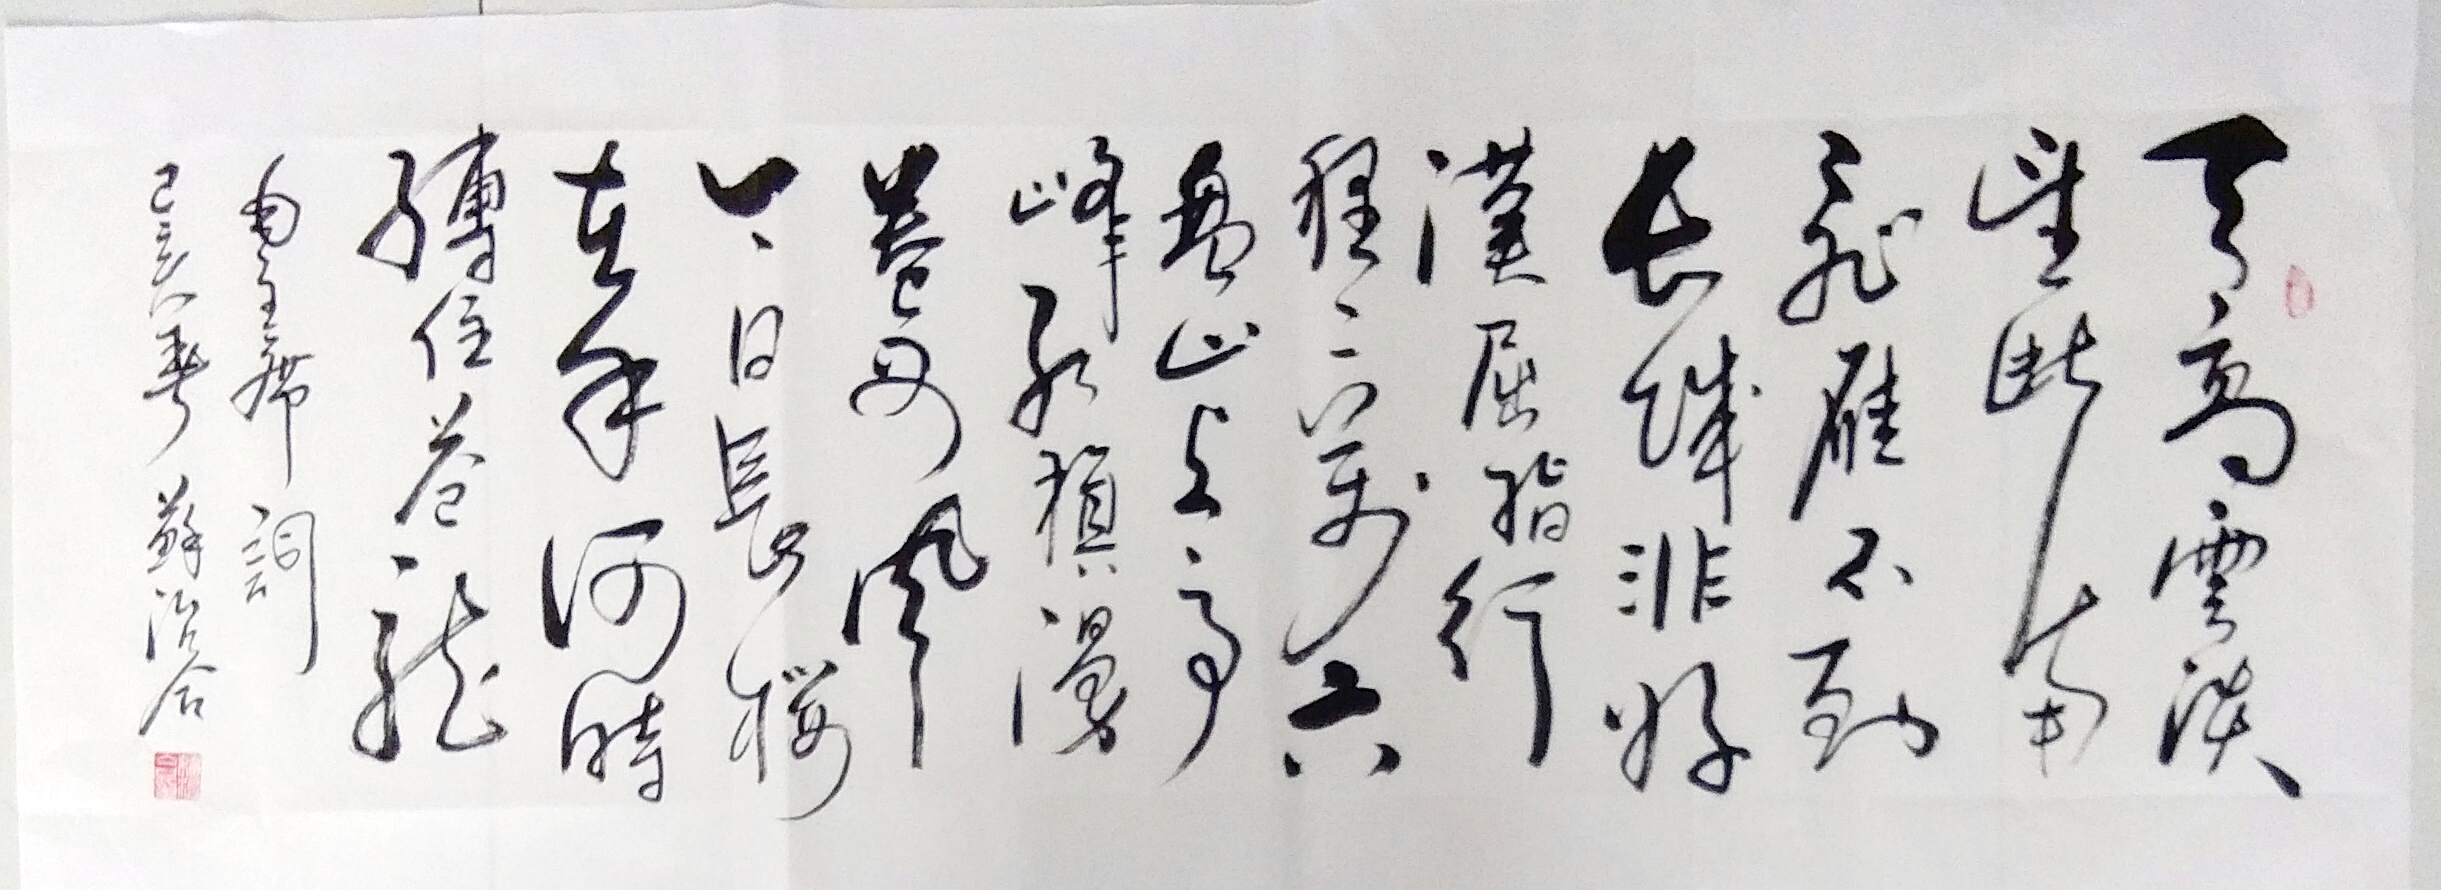 天高雲淡
望断南
飛雁不到
长城非好
漢屈指行
程二萬六
盘山上高
峰红旗漫
卷西風
今日長缨
在手何時
縛住苍龍
毛主席詞
己亥春 蘇治合